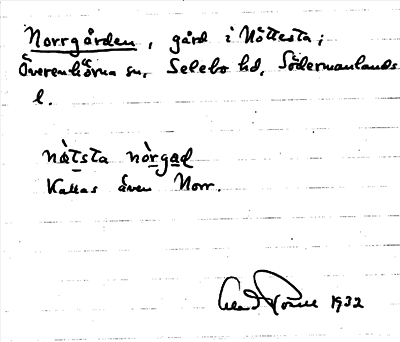 Norrgården, gård i Nöttesta;
Överenhörna sn, Selebo hd, Södermanlands
l.
nø̀tsta nòrgad
Kallas även Norr.
1932